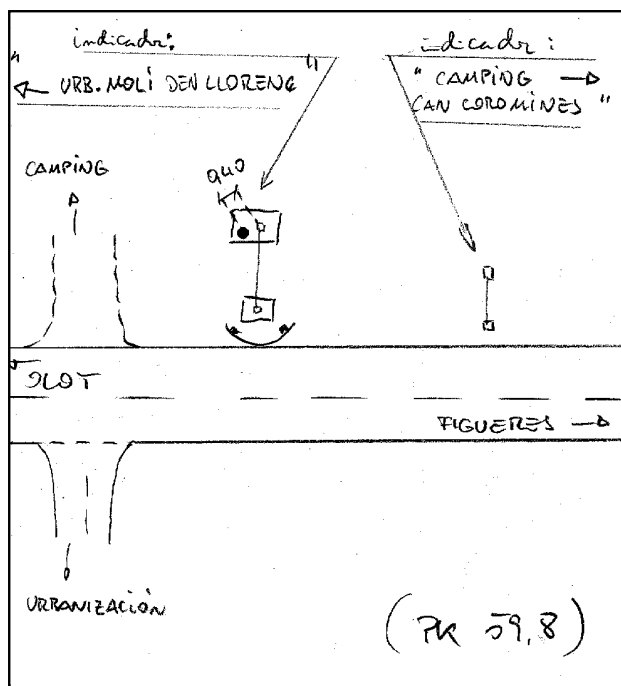 indicador:
"← URB. MOLÍ DEN LLORENÇ"
indicador:
" CAMPING →
CAN COROMINES "
CAMPING
0'40
OLOT
FIGUERES →
URBANIZACIÓN
(PK 59,8)